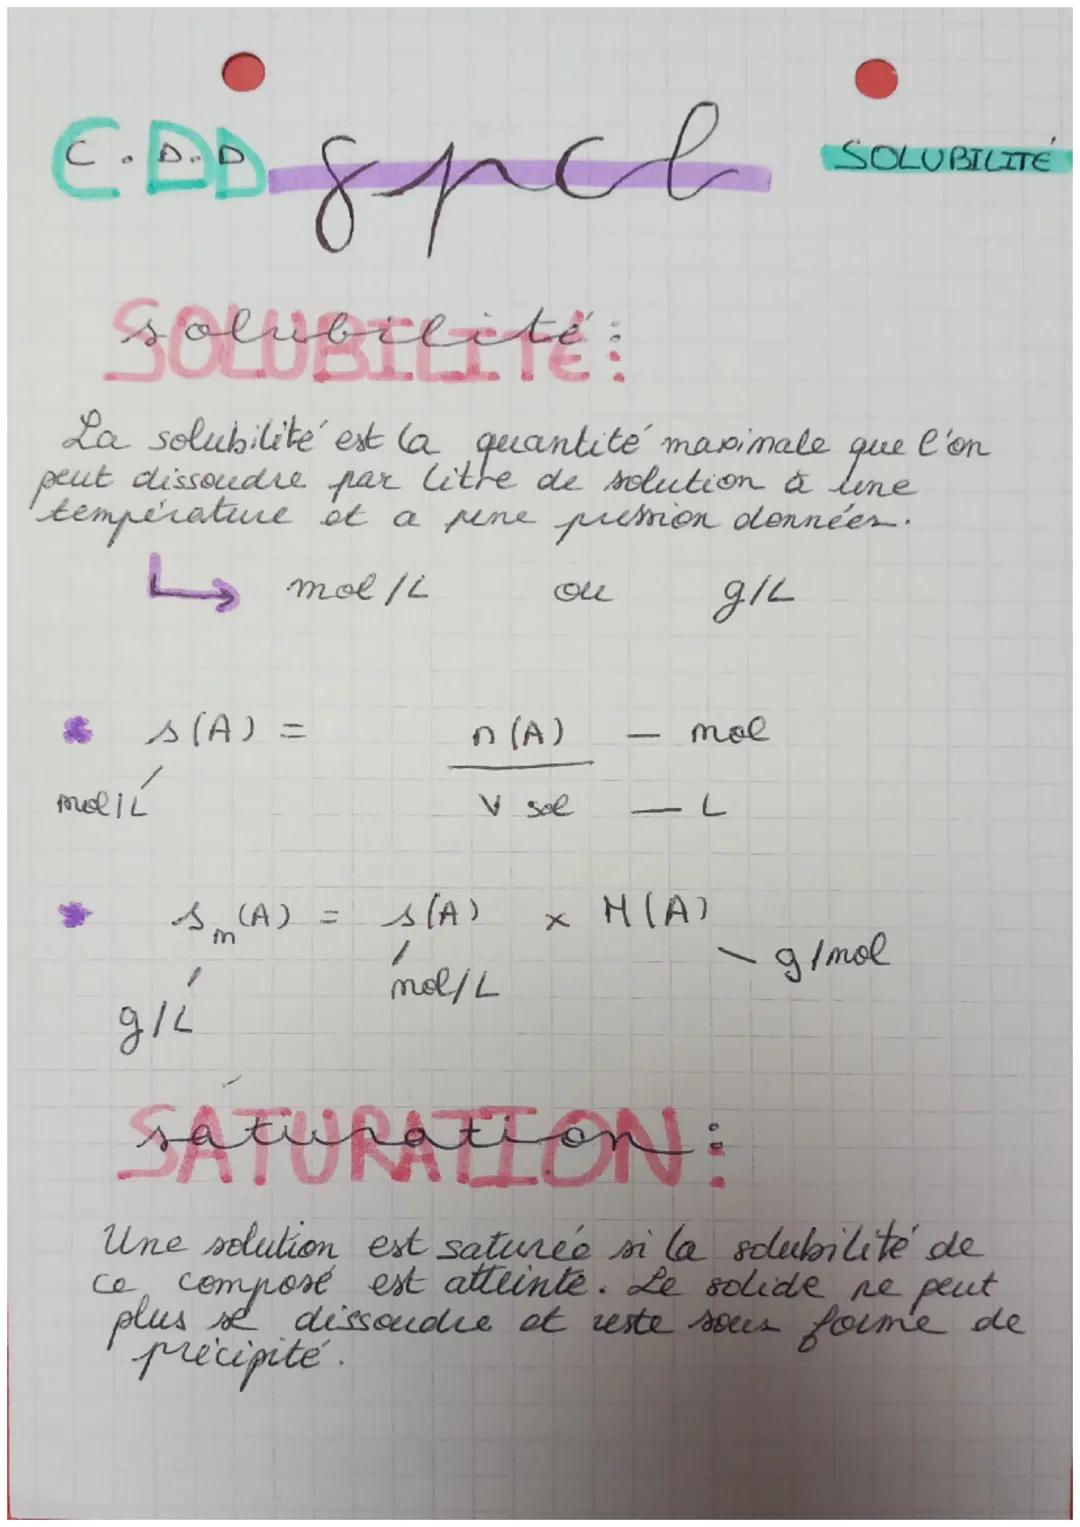 C.D.D
spcl
SOLUBILITÉ
SOLUBILITÉ:
solubilité:
La solubilité est la quantité maximale que l'on
peut dissoudre par litre de solution à une
température et a une pression données.
mol/L ou g/L
s(A) = n(A) — mol
mol/L V sol — L
s m (A) = s(A) x M(A)
g/L mol/L g/mol
SATURATION:
saturation:
Une solution est saturée si la solubilité de
ce composé est atteinte. Le solide ne peut
plus se dissoudre et reste sous forme de
précipité.